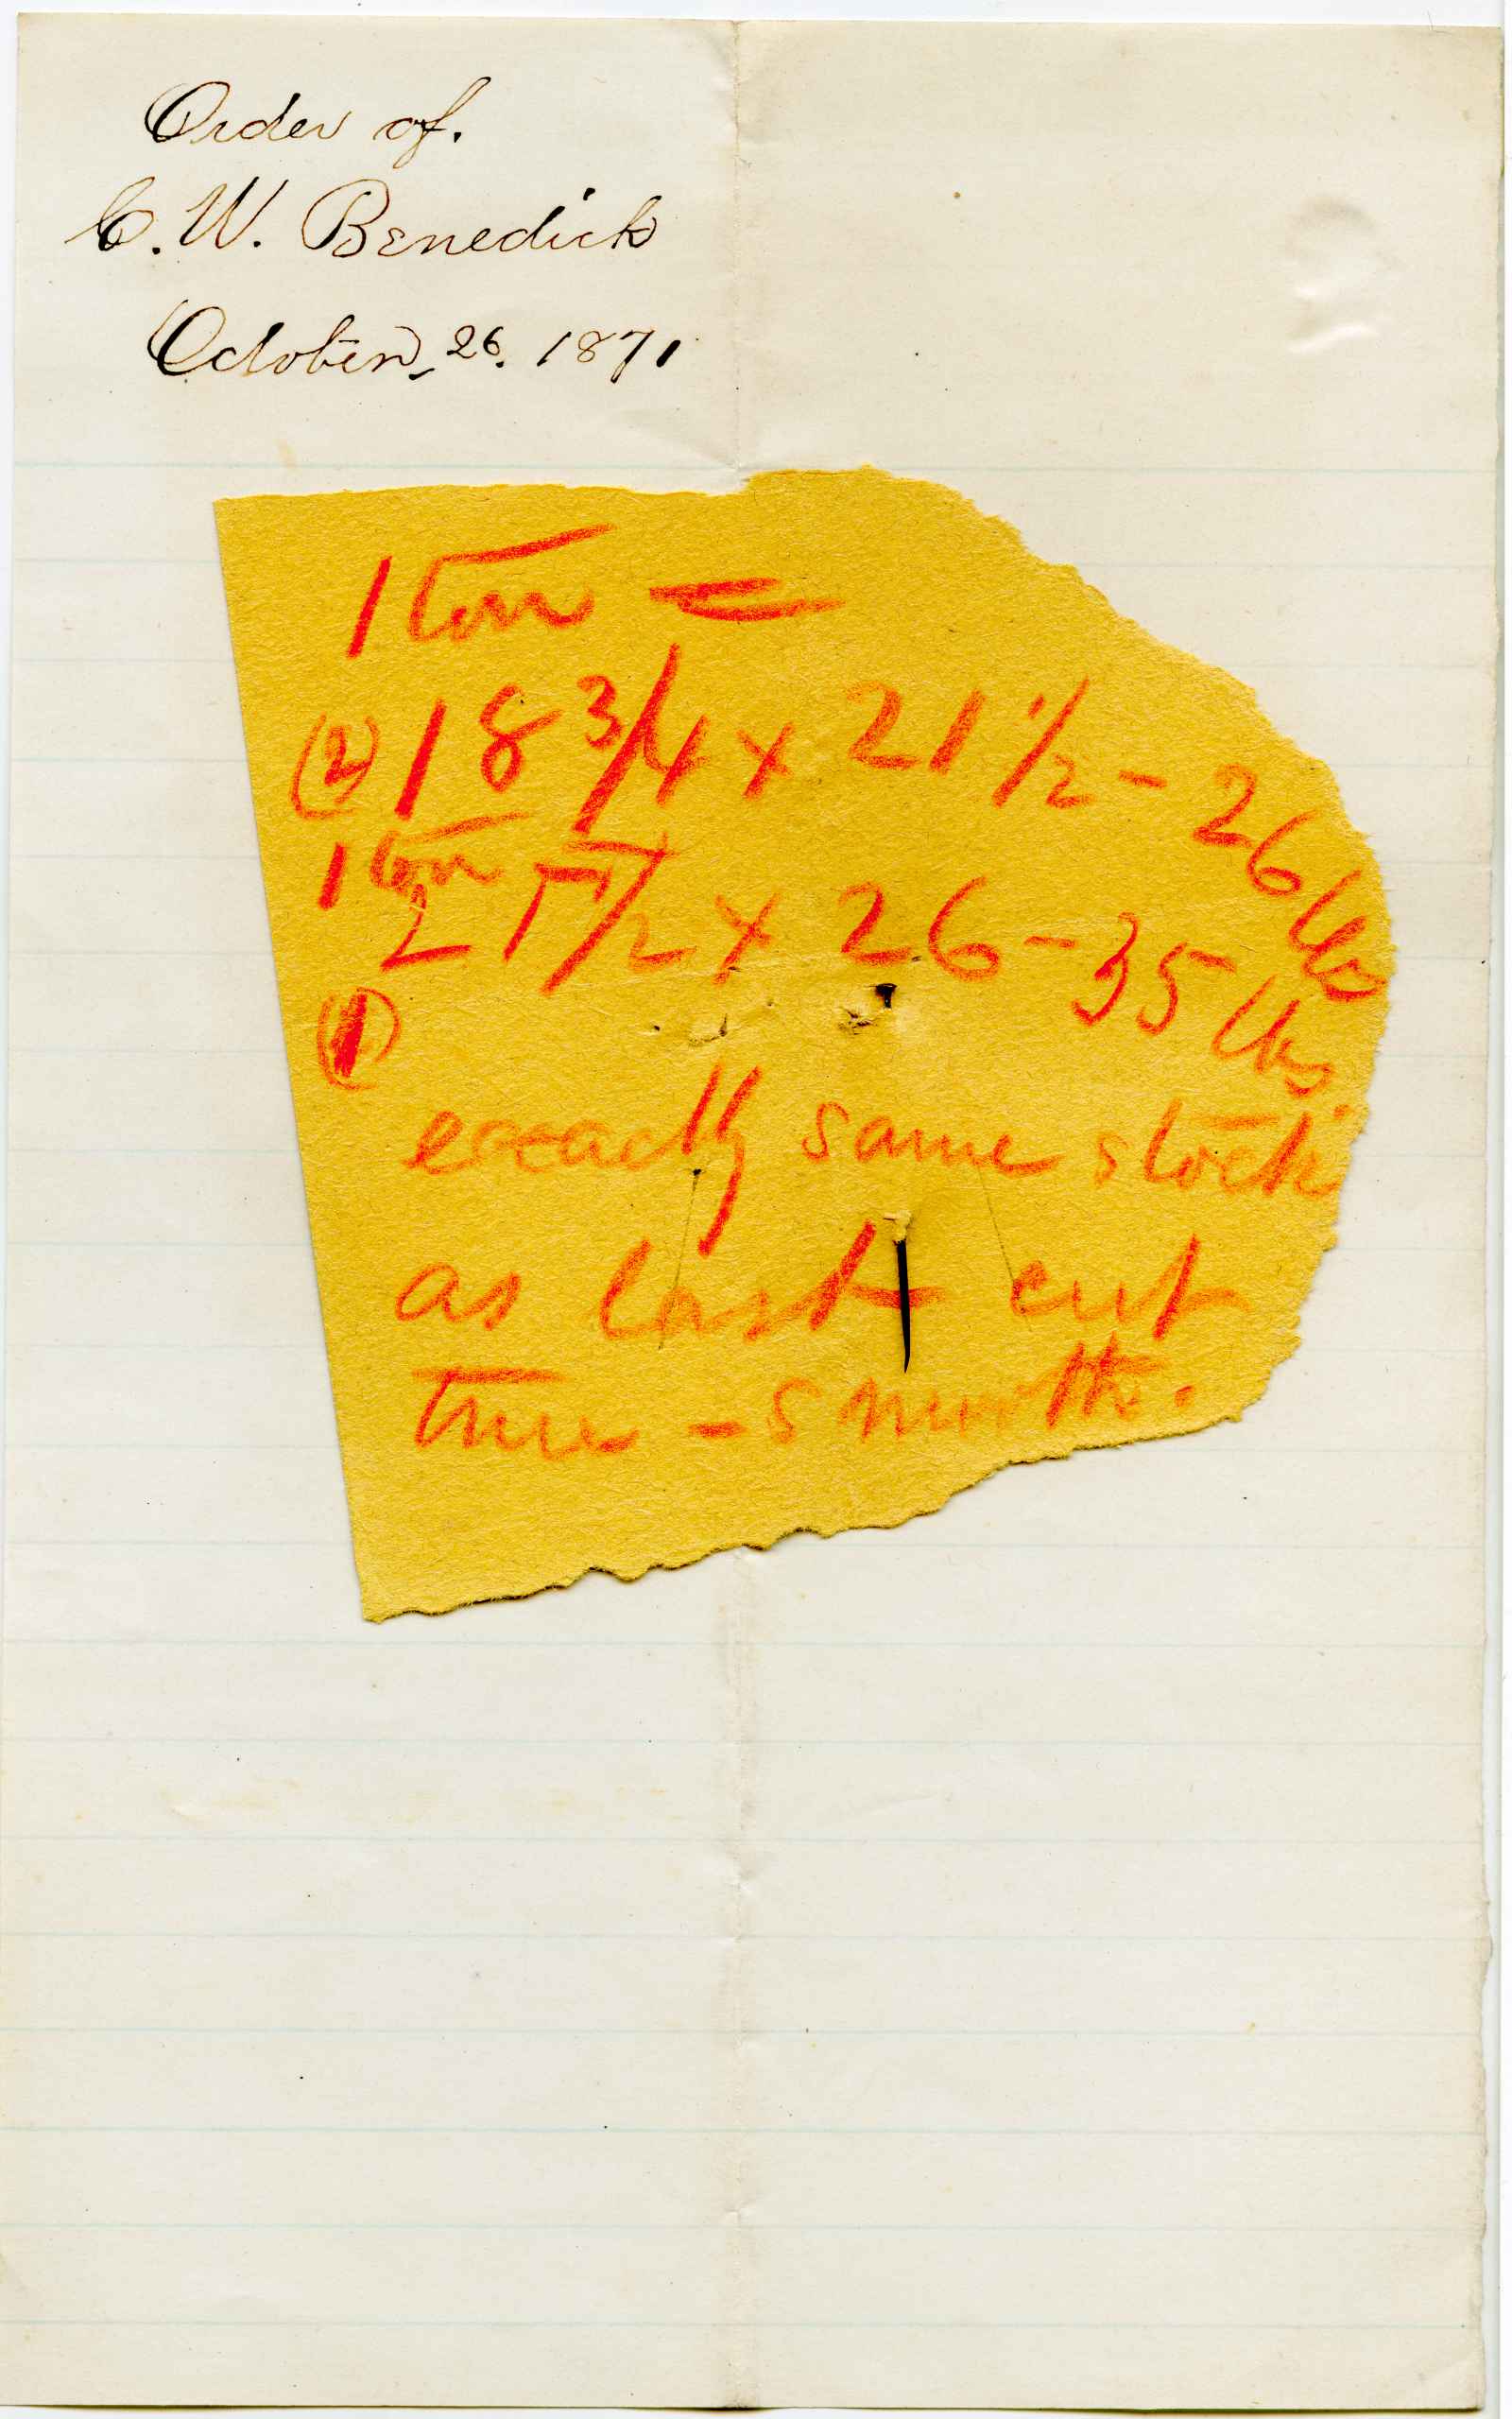 Order of.
C. W. Benedick
October, 26. 1871
1 ton =
(2) 18 3/4 x 21 1/2 - 26 lbs
1 ton
21 1/2 x 26 - 35 lbs.
(1)
exactly same stock
as last cut
true - smooth.